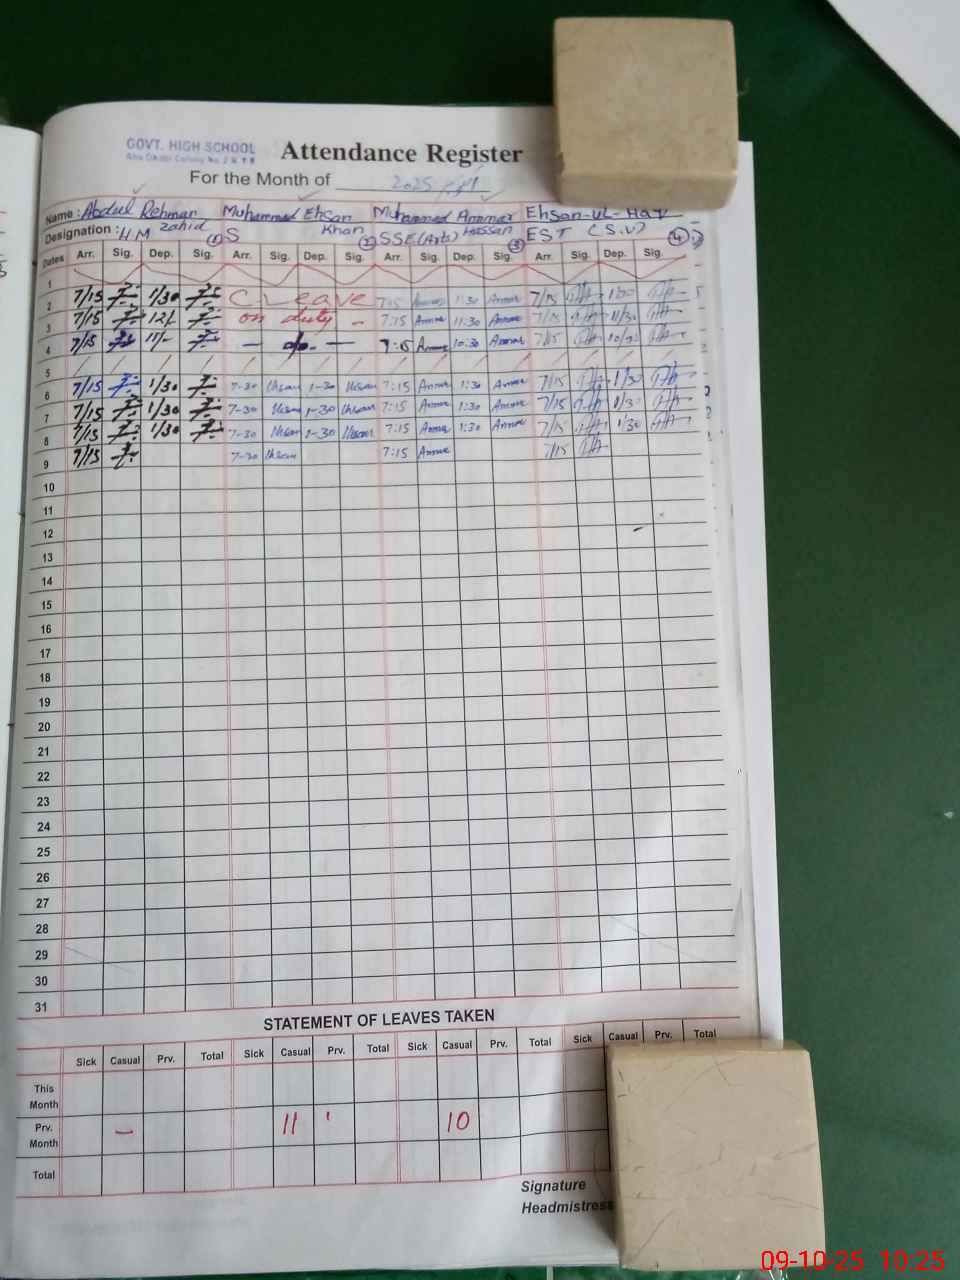 GOVT. HIGH SCHOOL
Attendance Register
For the Month of 2025
Name : Abdul Rehman Muhammad Ehsan Muhammad Ammar Ehsan-ul-Haq
Designation : H.M Zahid (1) S Khan (2) SSE (Arts) Hassan (3) EST (S.V) (4)
Dates Arr. Sig. Dep. Sig. Arr. Sig. Dep. Sig. Arr. Sig. Dep. Sig. Arr. Sig. Dep. Sig.
1
2 7/15 1/30 C Leave 7:15 Ammar 1:30 Ammar 7/15 1/30
3 7/15 12/- on duty - 7:15 Ammar 11:30 Ammar 7/15 11/30
4 7/15 11/- - do - 7:15 Ammar 10:30 Ammar 7/15 10/30
5
6 7/15 1/30 7-30 Ehsan 1-30 Ehsan 7:15 Ammar 1:30 Ammar 7/15 1/30
7 7/15 1/30 7-30 Ehsan 1-30 Ehsan 7:15 Ammar 1:30 Ammar 7/15 1/30
8 7/15 1/30 7-30 Ehsan 1-30 Ehsan 7:15 Ammar 1:30 Ammar 7/15 1/30
9 7/15 7-30 Ehsan 7:15 Ammar 7/15
10
11
12
13
14
15
16
17
18
19
20
21
22
23
24
25
26
27
28
29
30
31
STATEMENT OF LEAVES TAKEN
Sick Casual Prv. Total Sick Casual Prv. Total Sick Casual Prv. Total Sick Casual Prv. Total
This
Month
Prv.
Month - 11 10
Total
Signature
Headmistress
09-10-25 10:25